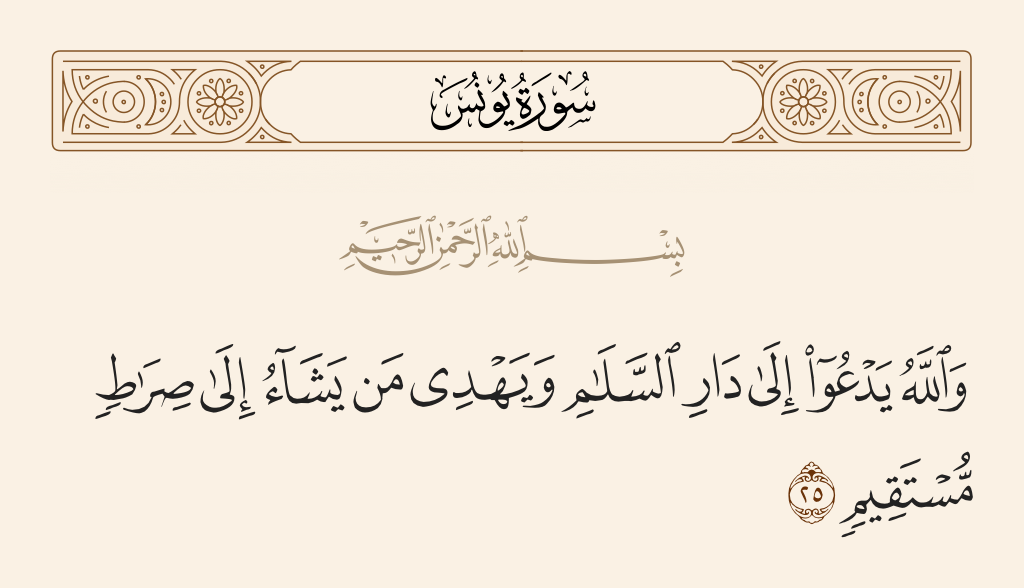 سُورَةُ يُونُسَ
بِسْمِ ٱللَّهِ ٱلرَّحْمَٰنِ ٱلرَّحِيمِ
وَٱللَّهُ يَدْعُوٓا۟ إِلَىٰ دَارِ ٱلسَّلَـٰمِ وَيَهْدِى مَن يَشَآءُ إِلَىٰ صِرَٰطٍ
مُّسْتَقِيمٍ ٢٥